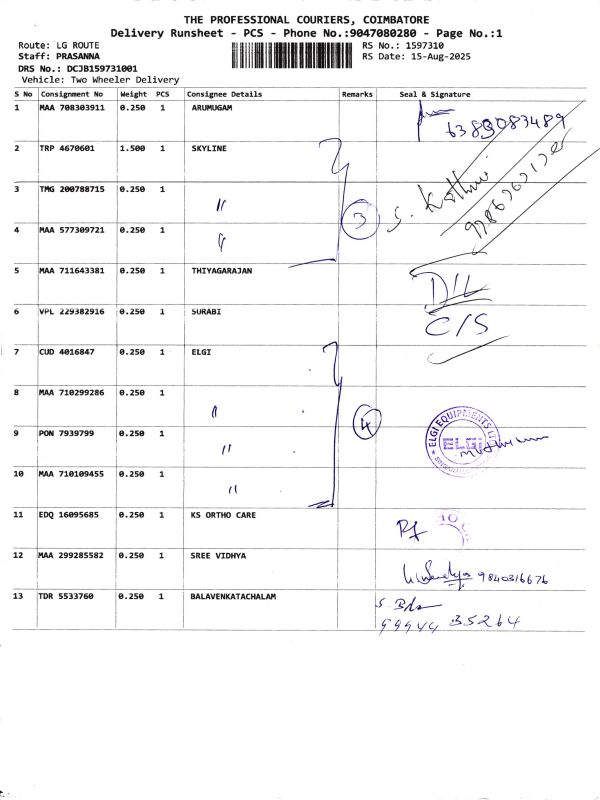 THE PROFESSIONAL COURIERS, COIMBATORE
Delivery Runsheet - PCS - Phone No.:9047080280 - Page No.:1
Route: LG ROUTE RS No.: 1597310
Staff: PRASANNA RS Date: 15-Aug-2025
DRS No.: DCJB159731001
Vehicle: Two Wheeler Delivery
S No Consignment No Weight PCS Consignee Details Remarks Seal & Signature
1 MAA 708303911 0.250 1 ARUMUGAM 6383083489
2 TRP 4670601 1.500 1 SKYLINE
3 TMG 200788715 0.250 1 " 3 S.
4 MAA 577309721 0.250 1 "
5 MAA 711643381 0.250 1 THIYAGARAJAN D/L
6 VPL 229382916 0.250 1 SURABI C/S
7 CUD 4016847 0.250 1 ELGI
8 MAA 710299286 0.250 1 " 4
9 PON 7939799 0.250 1 " ELGI EQUIPMENTS ELGI
10 MAA 710109455 0.250 1 "
11 EDQ 16095685 0.250 1 KS ORTHO CARE
12 MAA 299285582 0.250 1 SREE VIDHYA 9840316676
13 TDR 5533760 0.250 1 BALAVENKATACHALAM S.
99944 35264